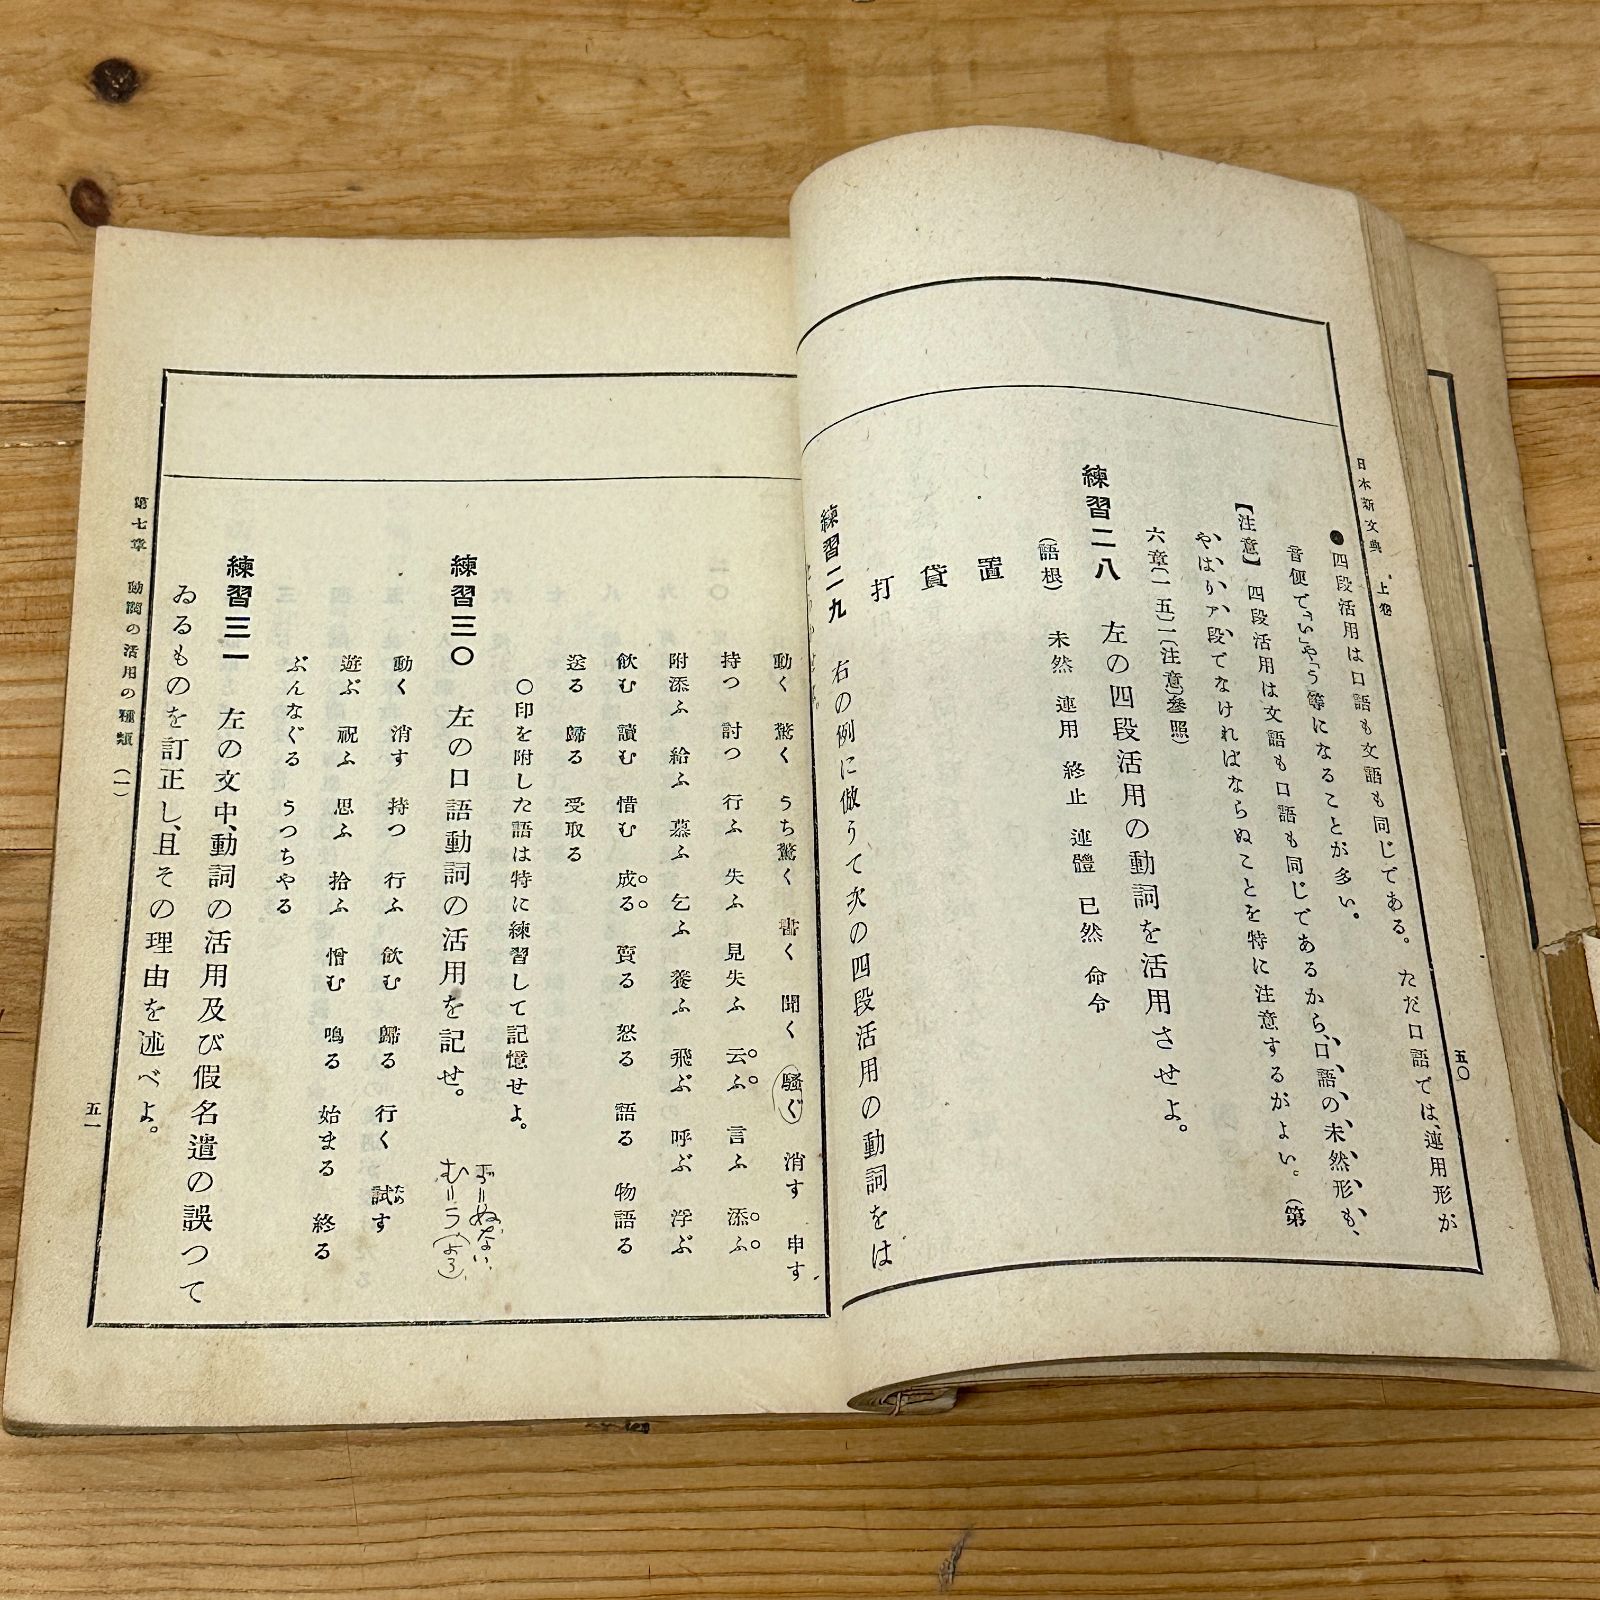 日本新文典 上卷
五〇
●四段活用は口語も文語も同じである。ただ口語では、連用形が
音便で「い」や「う」等になることが多い。
【注意】 四段活用は文語も口語も同じであるから、口語の未然形も、
やはりア段でなければならぬことを特に注意するがよい。(第
六章(一五)一〔注意〕參照)
練習二八 左の四段活用の動詞を活用させよ。
(語根) 未然 連用 終止 連體 已然 命令
置
貸
打
練習二九 右の例に倣うて次の四段活用の動詞をは
動く 驚く うち驚く 書く 聞く 騷ぐ 消す 申す
持つ 討つ 行ふ 失ふ 見失ふ 云ふ 言ふ 添ふ
附添ふ 給ふ 慕ふ 乞ふ 養ふ 飛ぶ 呼ぶ 浮ぶ
飮む 讀む 惜む 成る 賣る 怒る 語る 物語る
送る 歸る 受取る
〇印を附した語は特に練習して記憶せよ。
練習三〇 左の口語動詞の活用を記せ。
動く 消す 持つ 行ふ 飮む 歸る 行く 試す
ため
遊ぶ 祝ふ 思ふ 拾ふ 憎む 鳴る 始まる 終る
ぶんなぐる うつちやる
む=う(よう)
練習三一 左の文中、動詞の活用及び假名遣の誤つて
ゐるものを訂正し、且その理由を述べよ。
第七章 動詞の活用の種類(一)
五一